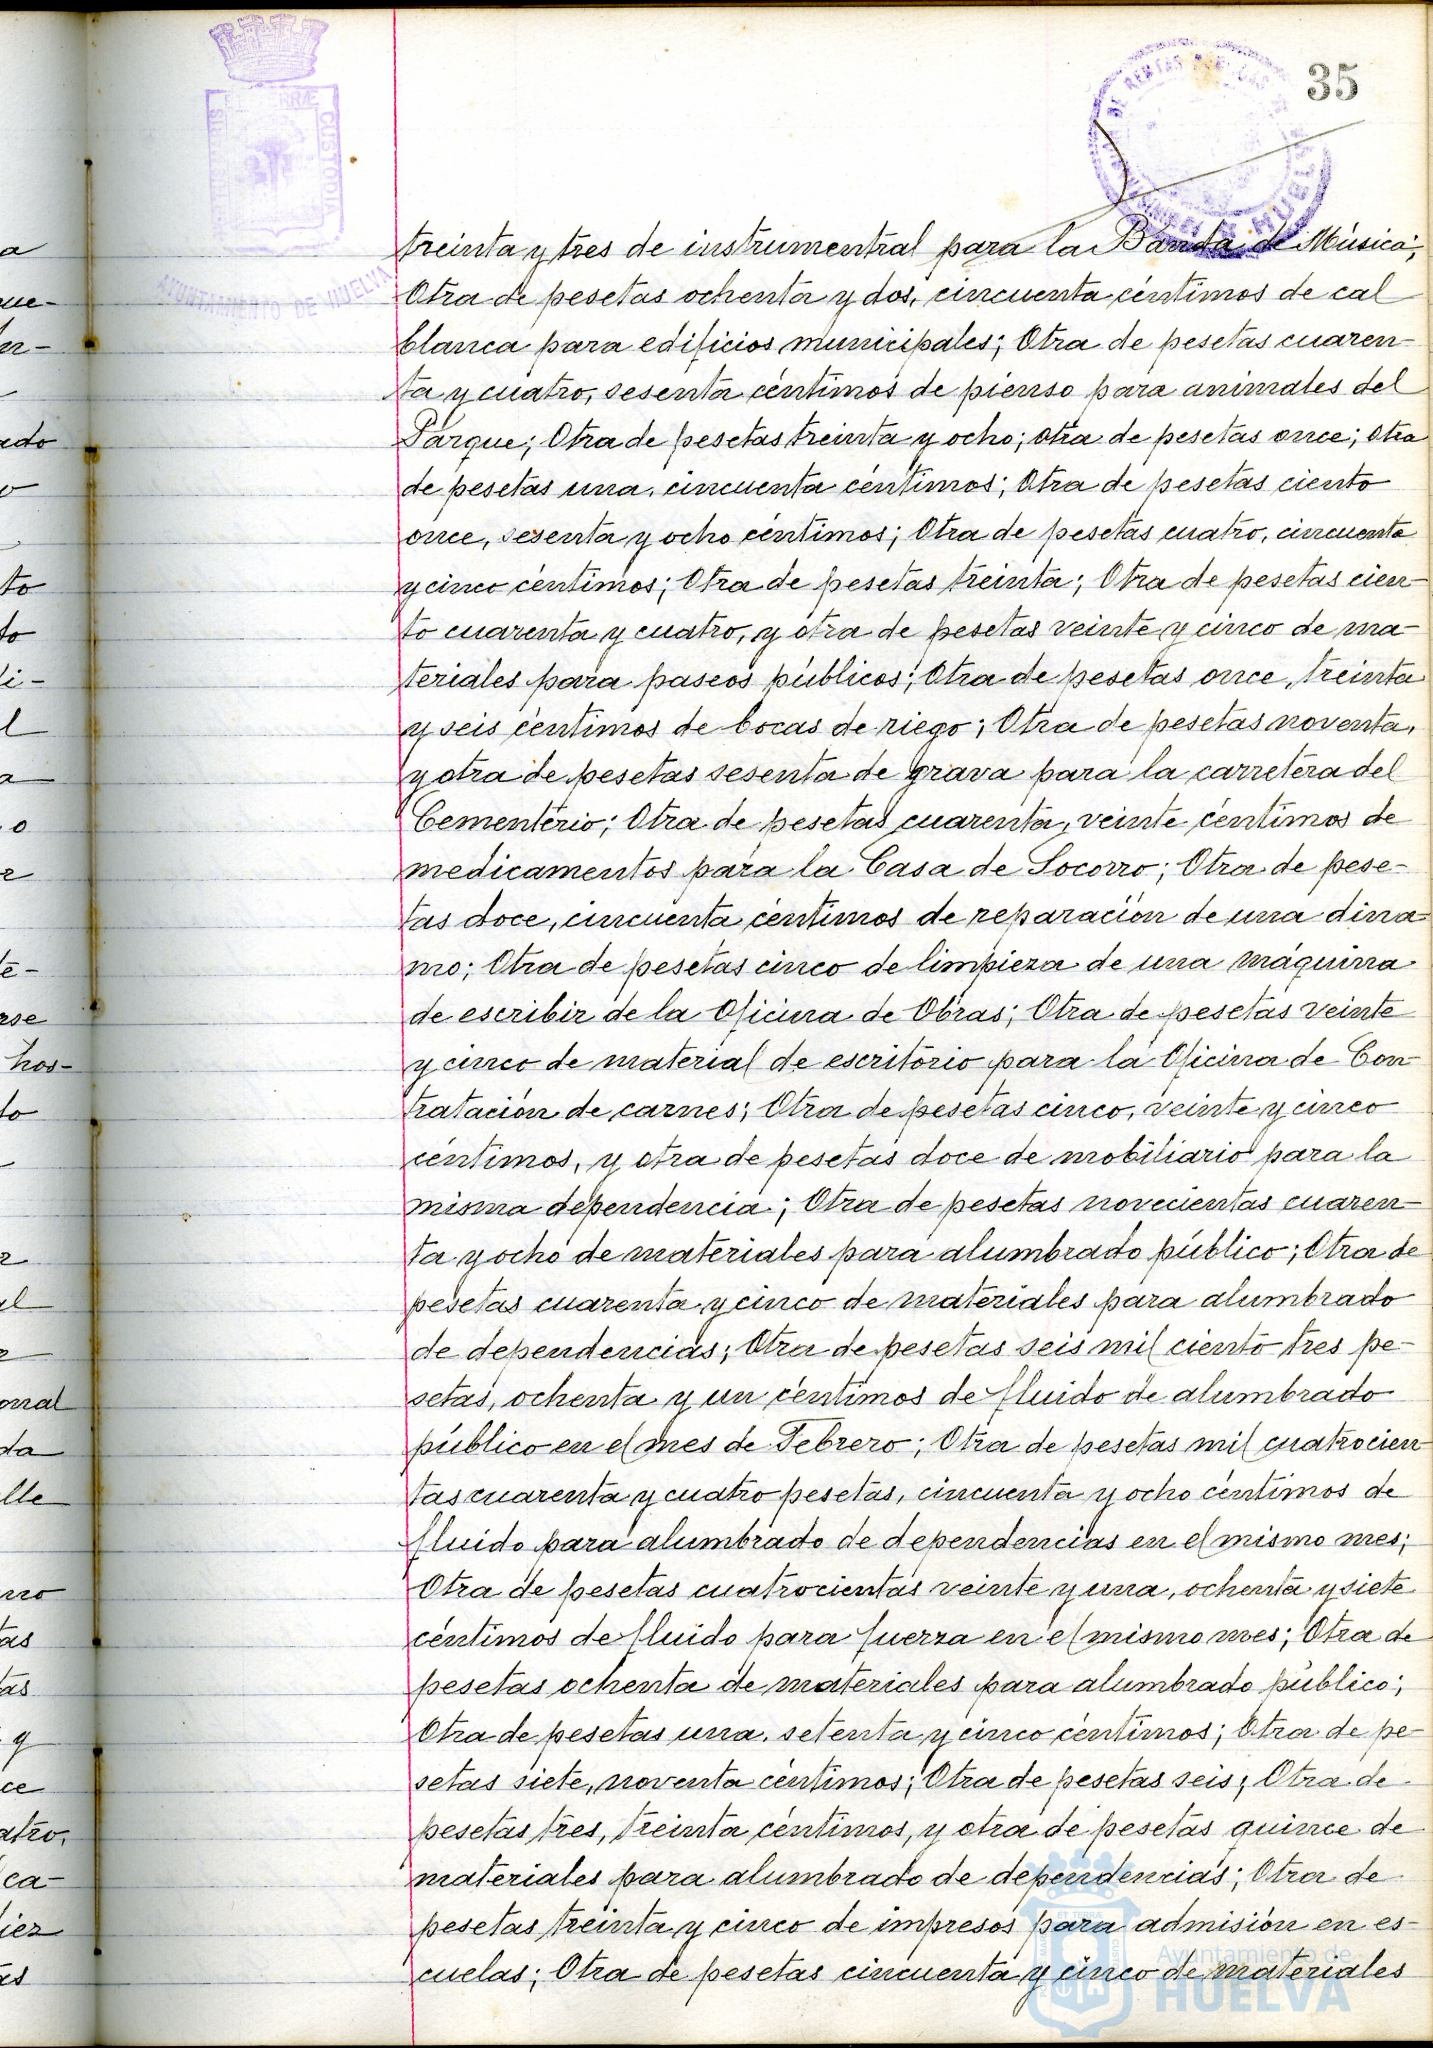 35
treinta y tres de instrumentral para la Banda de Música;
Otra de pesetas ochenta y dos, cincuenta céntimos de cal
blanca para edificios municipales; Otra de pesetas cuaren-
ta y cuatro, sesenta céntimos de pienso para animales del
Parque; Otra de pesetas treinta y ocho; otra de pesetas once; otra
de pesetas una, cincuenta céntimos; Otra de pesetas ciento
once, sesenta y ocho céntimos; Otra de pesetas cuatro, cincuenta
y cinco céntimos; Otra de pesetas treinta; Otra de pesetas cien-
to cuarenta y cuatro, y otra de pesetas veinte y cinco de ma-
teriales para paseos públicos; Otra de pesetas once, treinta
y seis céntimos de bocas de riego; Otra de pesetas noventa,
y otra de pesetas sesenta de grava para la carretera del
Cementerio; Otra de pesetas cuarenta, veinte céntimos de
medicamentos para la Casa de Socorro; Otra de pese-
tas doce, cincuenta céntimos de reparación de una dina-
mo; Otra de pesetas cinco de limpieza de una máquina
de escribir de la Oficina de Obras; Otra de pesetas veinte
y cinco de material de escritorio para la Oficina de Con-
tratación de carnes; Otra de pesetas cinco, veinte y cinco
céntimos, y otra de pesetas doce de mobiliario para la
misma dependencia; Otra de pesetas novecientas cuaren-
ta y ocho de materiales para alumbrado público; Otra de
pesetas cuarenta y cinco de materiales para alumbrado
de dependencias; Otra de pesetas seis mil ciento tres pe-
setas, ochenta y un céntimos de fluido de alumbrado
público en el mes de Febrero; Otra de pesetas mil cuatrocien-
tas cuarenta y cuatro pesetas, cincuenta y ocho céntimos de
fluido para alumbrado de dependencias en el mismo mes;
Otra de pesetas cuatrocientas veinte y una, ochenta y siete
céntimos de fluido para fuerza en el mismo mes; Otra de
pesetas ochenta de materiales para alumbrado público;
Otra de pesetas una, setenta y cinco céntimos; Otra de pe-
setas siete, noventa céntimos; Otra de pesetas seis; Otra de
pesetas tres, treinta céntimos, y otra de pesetas quince de
materiales para alumbrado de dependencias; Otra de
pesetas treinta y cinco de impresos para admisión en es-
cuelas; Otra de pesetas cincuenta y cinco de materiales
AYUNTAMIENTO DE HUELVA
CUSTODIA
DE RENTAS HUELVA
Ayuntamiento de
HUELVA